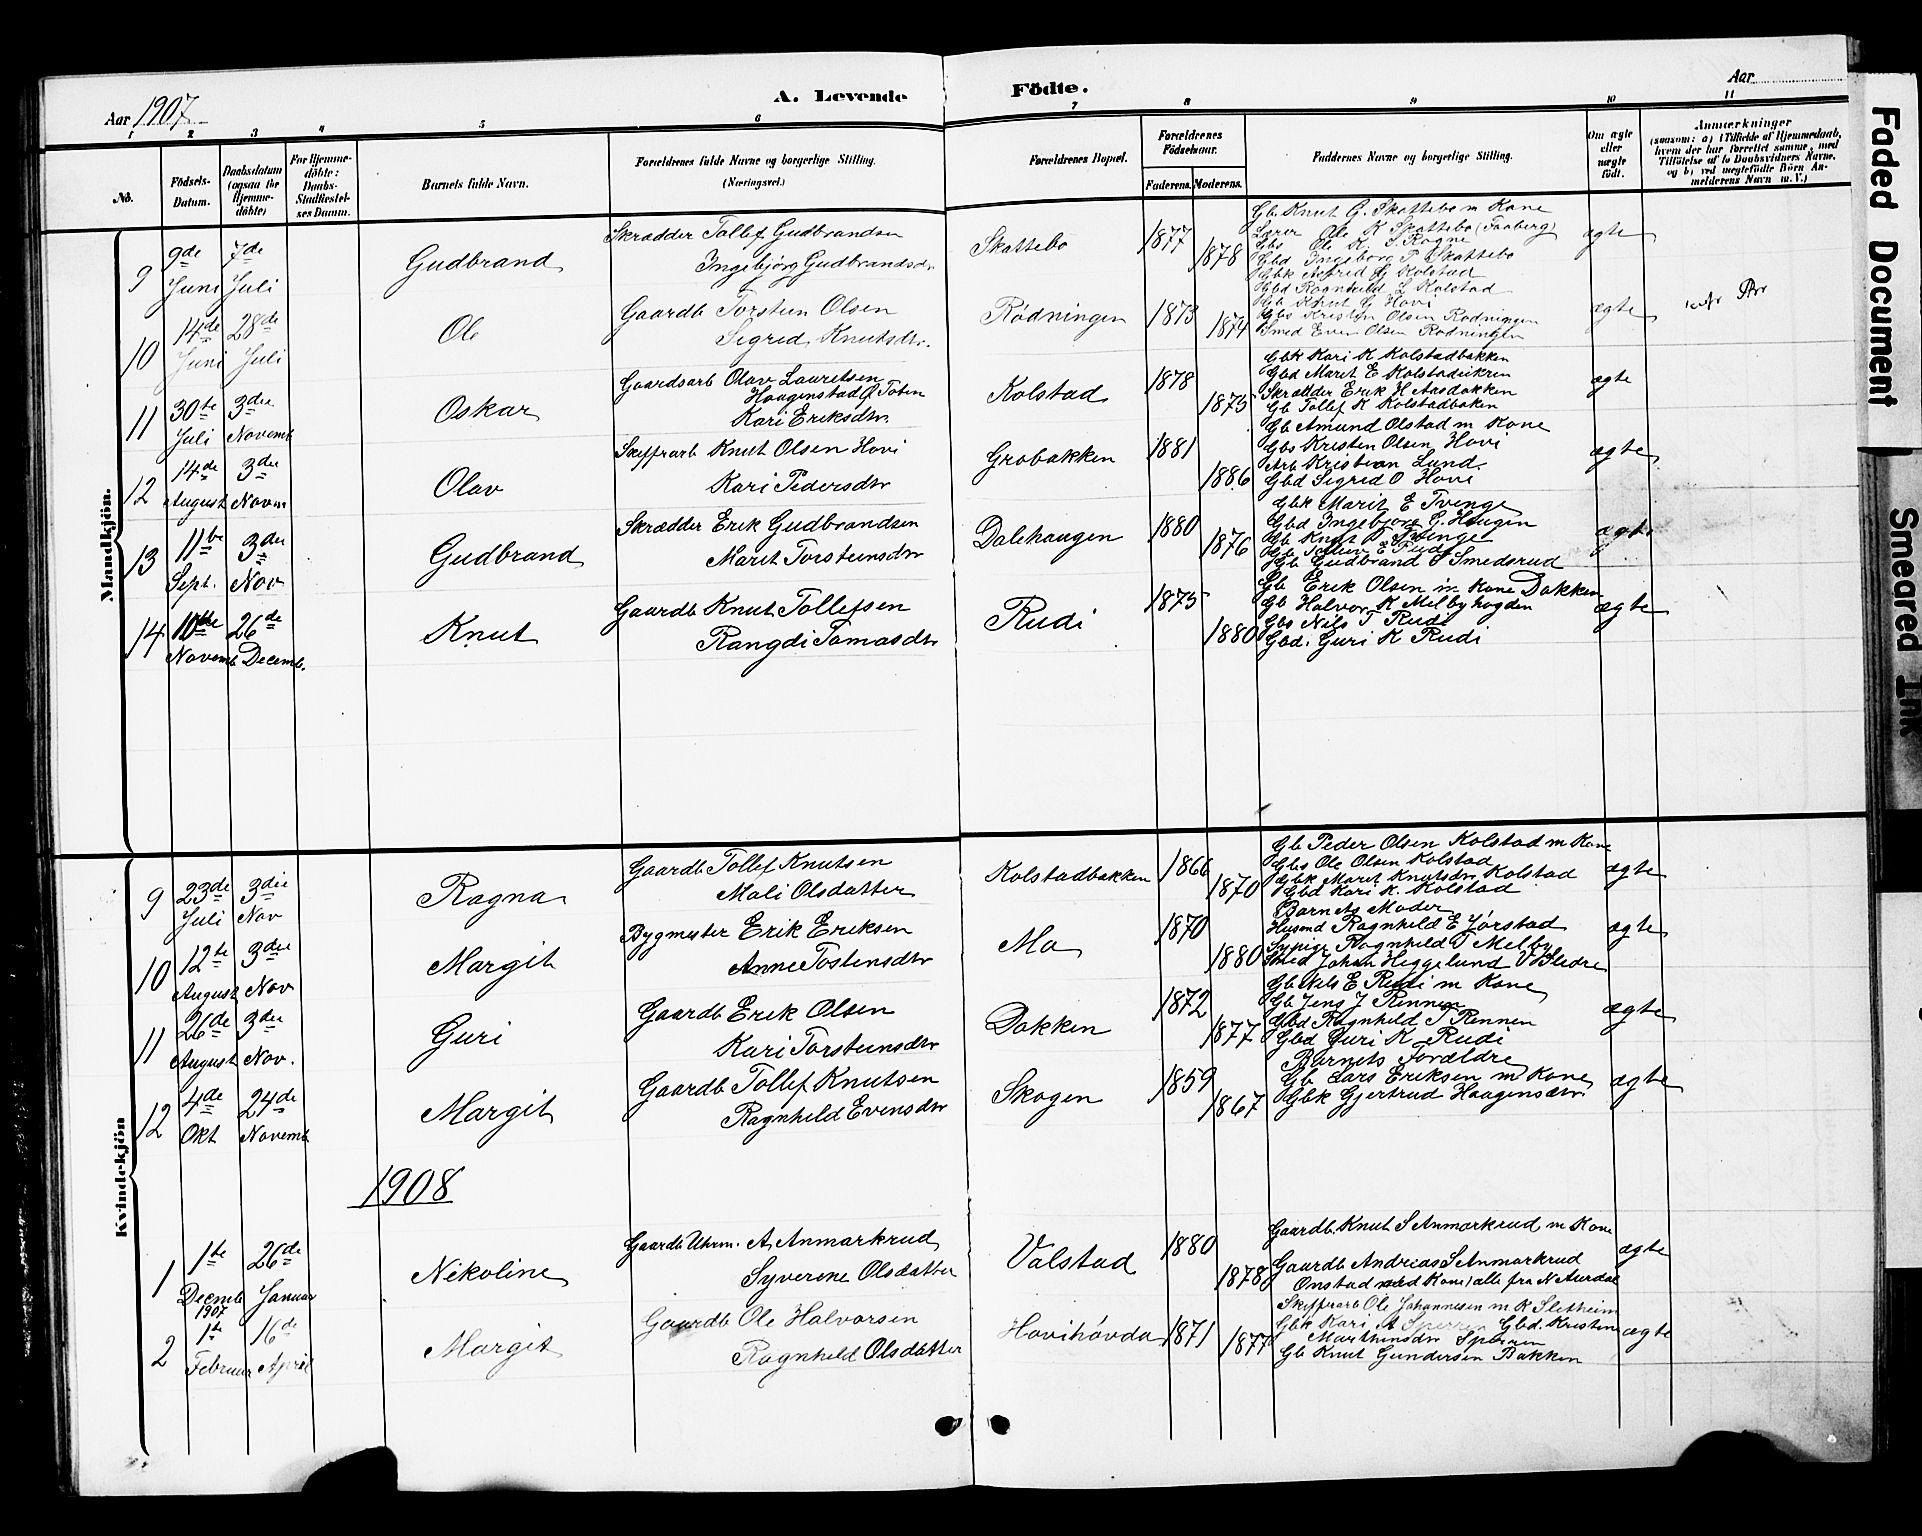 Aar 1907
A. Levende Födte.
Aar
1 2 3 4 5 6 7 8 9 10 11
No.
Födsels-Datum.
Daabsdatum (ogsaa for Hjemme-döbte)
For Hjemme-döbte: Daabs-Stadfæstel-ses Datum.
Barnets fulde Navn.
Forældrenes fulde Navne og borgerlige Stilling.
(Næringsvei.)
Forældrenes Bopæl.
Forældrenes Födselsaar.
Faderens. Moderens.
Faddernes Navne og borgerlige Stilling.
Om ægte eller uægte født.
Anmærkninger
(saasom: a) i Tilfælde af Hjemmedaab, hvem der har forrettet samme, med Tilföielse af to Daabsvidners Navne, og b) ved uægtefödte Börn An-melderens Navn m. V.)
Mandkjön.
9 9de Juni 7de Juli Gudbrand
Skrædder Tollef Gudbrandsen
Ingebjörg Gudbrandsdr
Skattebo 1877 1878
Gb. Knut G. Skattebo m Kone
Lærer Ole K Skattebo (Faaberg)
Gbs Ole K. S. Rogne
Gbd Ingeborg T Skattebo
Gbk Astrid G Kolstad
ægte
10 14de Juni 28de Juli Ole
Gaardb Torstein Olsen
Sigrid Knutsdtr.
Rödningen 1873 1874
Gbd Ragnhild L Kolstad
Gb Knut G Hovi
Gbs Kristen Olsen Rödningen
Smed Even Olsen Rödningen
ægte
11 30te Juli 3die Novemb Oskar
Gaardsarb Olav Lauritsen
Haagenstad Ø Toten
Kari Eriksdtr.
Kolstad 1878 1875
Gbk Kari K Kolstadbakken
Gbd Marit E Kolstadeikren
Skrædder Erik H Aasdokken
Gb Tollef K Kolstadbaken
ægte
12 14de August 3die Novm Olav
Skiffrarb Knut Olsen Hovi
Kari Pedersdtr
Grobakken 1881 1886
Gb Amund Olstad m Kone
Gbs Kristen Olsen Hovi
Arb Kristian Lund.
Gbd Sigrid O Hovi
ægte
13 11te Sept. 3die Nov Gudbrand
Skrædder Erik Gudbrandsen
Marit Torsteinsdtr
Dalehaugen 1880 1876
Gbk Marit E Tvenge
Gbd Ingebjörg G. Haugen
Gb Knut O Tvinget
Gb Tollev E Rudi
Gb Gudbrand S Smedsrud
ægte
14 10de Novemb 26de Decemb. Knut
Gaardb Knut Tollefsen
Rangdi Tomasdtr
Rudi 1875 1880
Gb Erik Olsen m Kone Dokken
Gb Halvor K Melbyhogden
Gbs Nils T Rudi
Gbd. Guri K Rudi
ægte
Kvindekjön
9 23de Juli 3die Nov Ragna
Gaardb Tollef Knutsen
Mali Olsdatter
Kolstadbakken 1866 1870
Gb Peder Olsen Kolstad m Kone
Gbs Ole Olsen Kolstad
Gbk Marit Knutsdtr Kolstad
Gbd Kari K. Kolstad
ægte
10 12te August 3die Nov Margit
Bygmester Erik Eriksen
Anne Tostensdtr
Mo 1870 1880
Barnets Moder
Husmd Ragnhild E Jørstad
Sypige Ragnhild T Melby
Smed Johan Heggelund V Slidre
ægte
11 26de August 3die Nov. Guri
Gaardb Erik Olsen
Kari Torsteinsdtr
Dokken 1872 1877
Gb Nils E Rudi m Kone
Gb Jens J Rennen
Gbd Ragnhild T Rennen
Gbd Guri K Rudi
ægte
12 4de Okt 24de Novemb Margit
Gaardb Tollef Knutsen
Ragnhild Evensdtr
Skogen 1859 1867
Barnets Forældre
Gb Lars Eriksen m Kone
Gbk Gjertrud Haagensdtr
ægte
1908
1 1te Decemb 1907 26de Januar Nikoline
Gaardb Uhrm. A Anmarkrud
Syverine Olsdatter
Valstad 1880 1878
Gaardb. Knut S Anmarkrud m Kone
Gaardb Andreas S Anmarkrud
Onstad med Kone) alle fra N Aurdal
ægte
2 1te Februar 16de April Margit
Gaardb Ole Halvorsen
Ragnhild Olsdatter
Hovihövda 1871 1877
Skifferarb Ole Johannesen m K Sletheim
Gbk Kari A Sperren Gbd. Kristine
Marthinsdtr Sperren
Gb Knut Gundersen Bakken
ægte
Faded Document
Smeared Ink